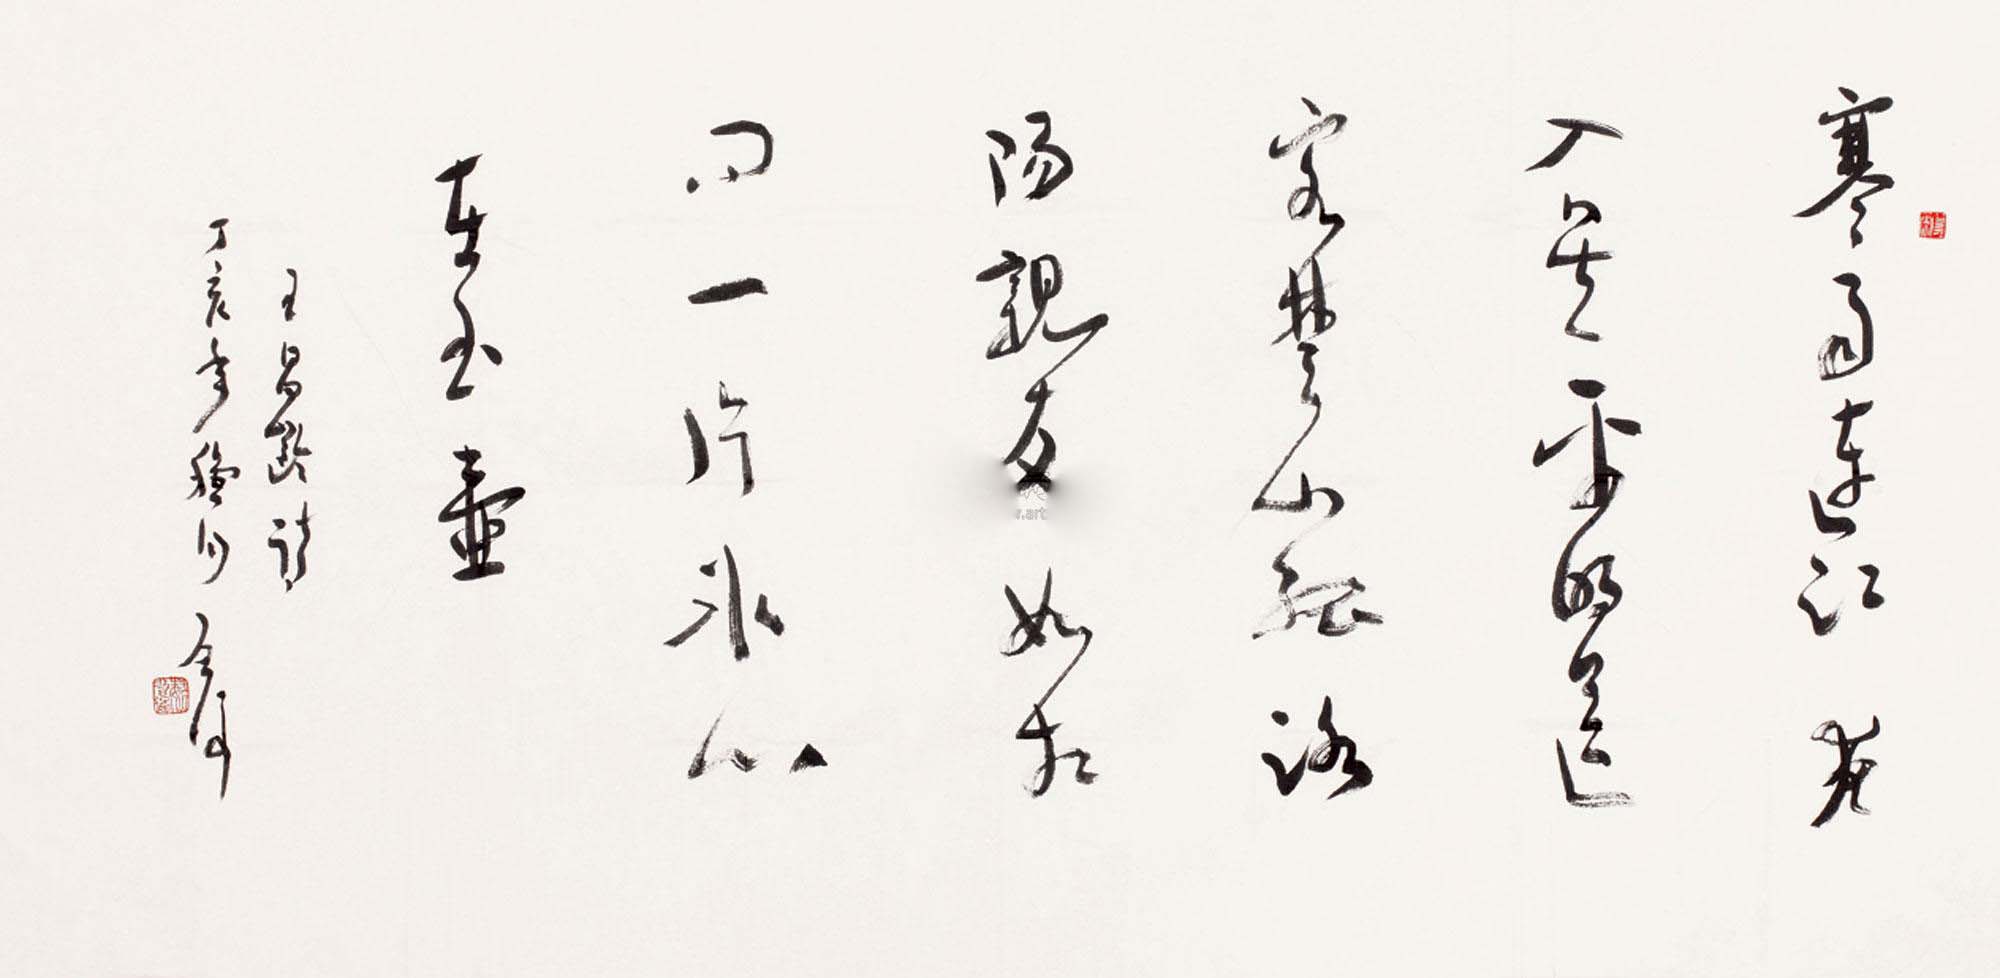 寒雨連江夜
入吳平明送
客楚山孤洛
陽親友如相
問一片冰心
在玉壺
王昌齡詩
丁亥年
.art